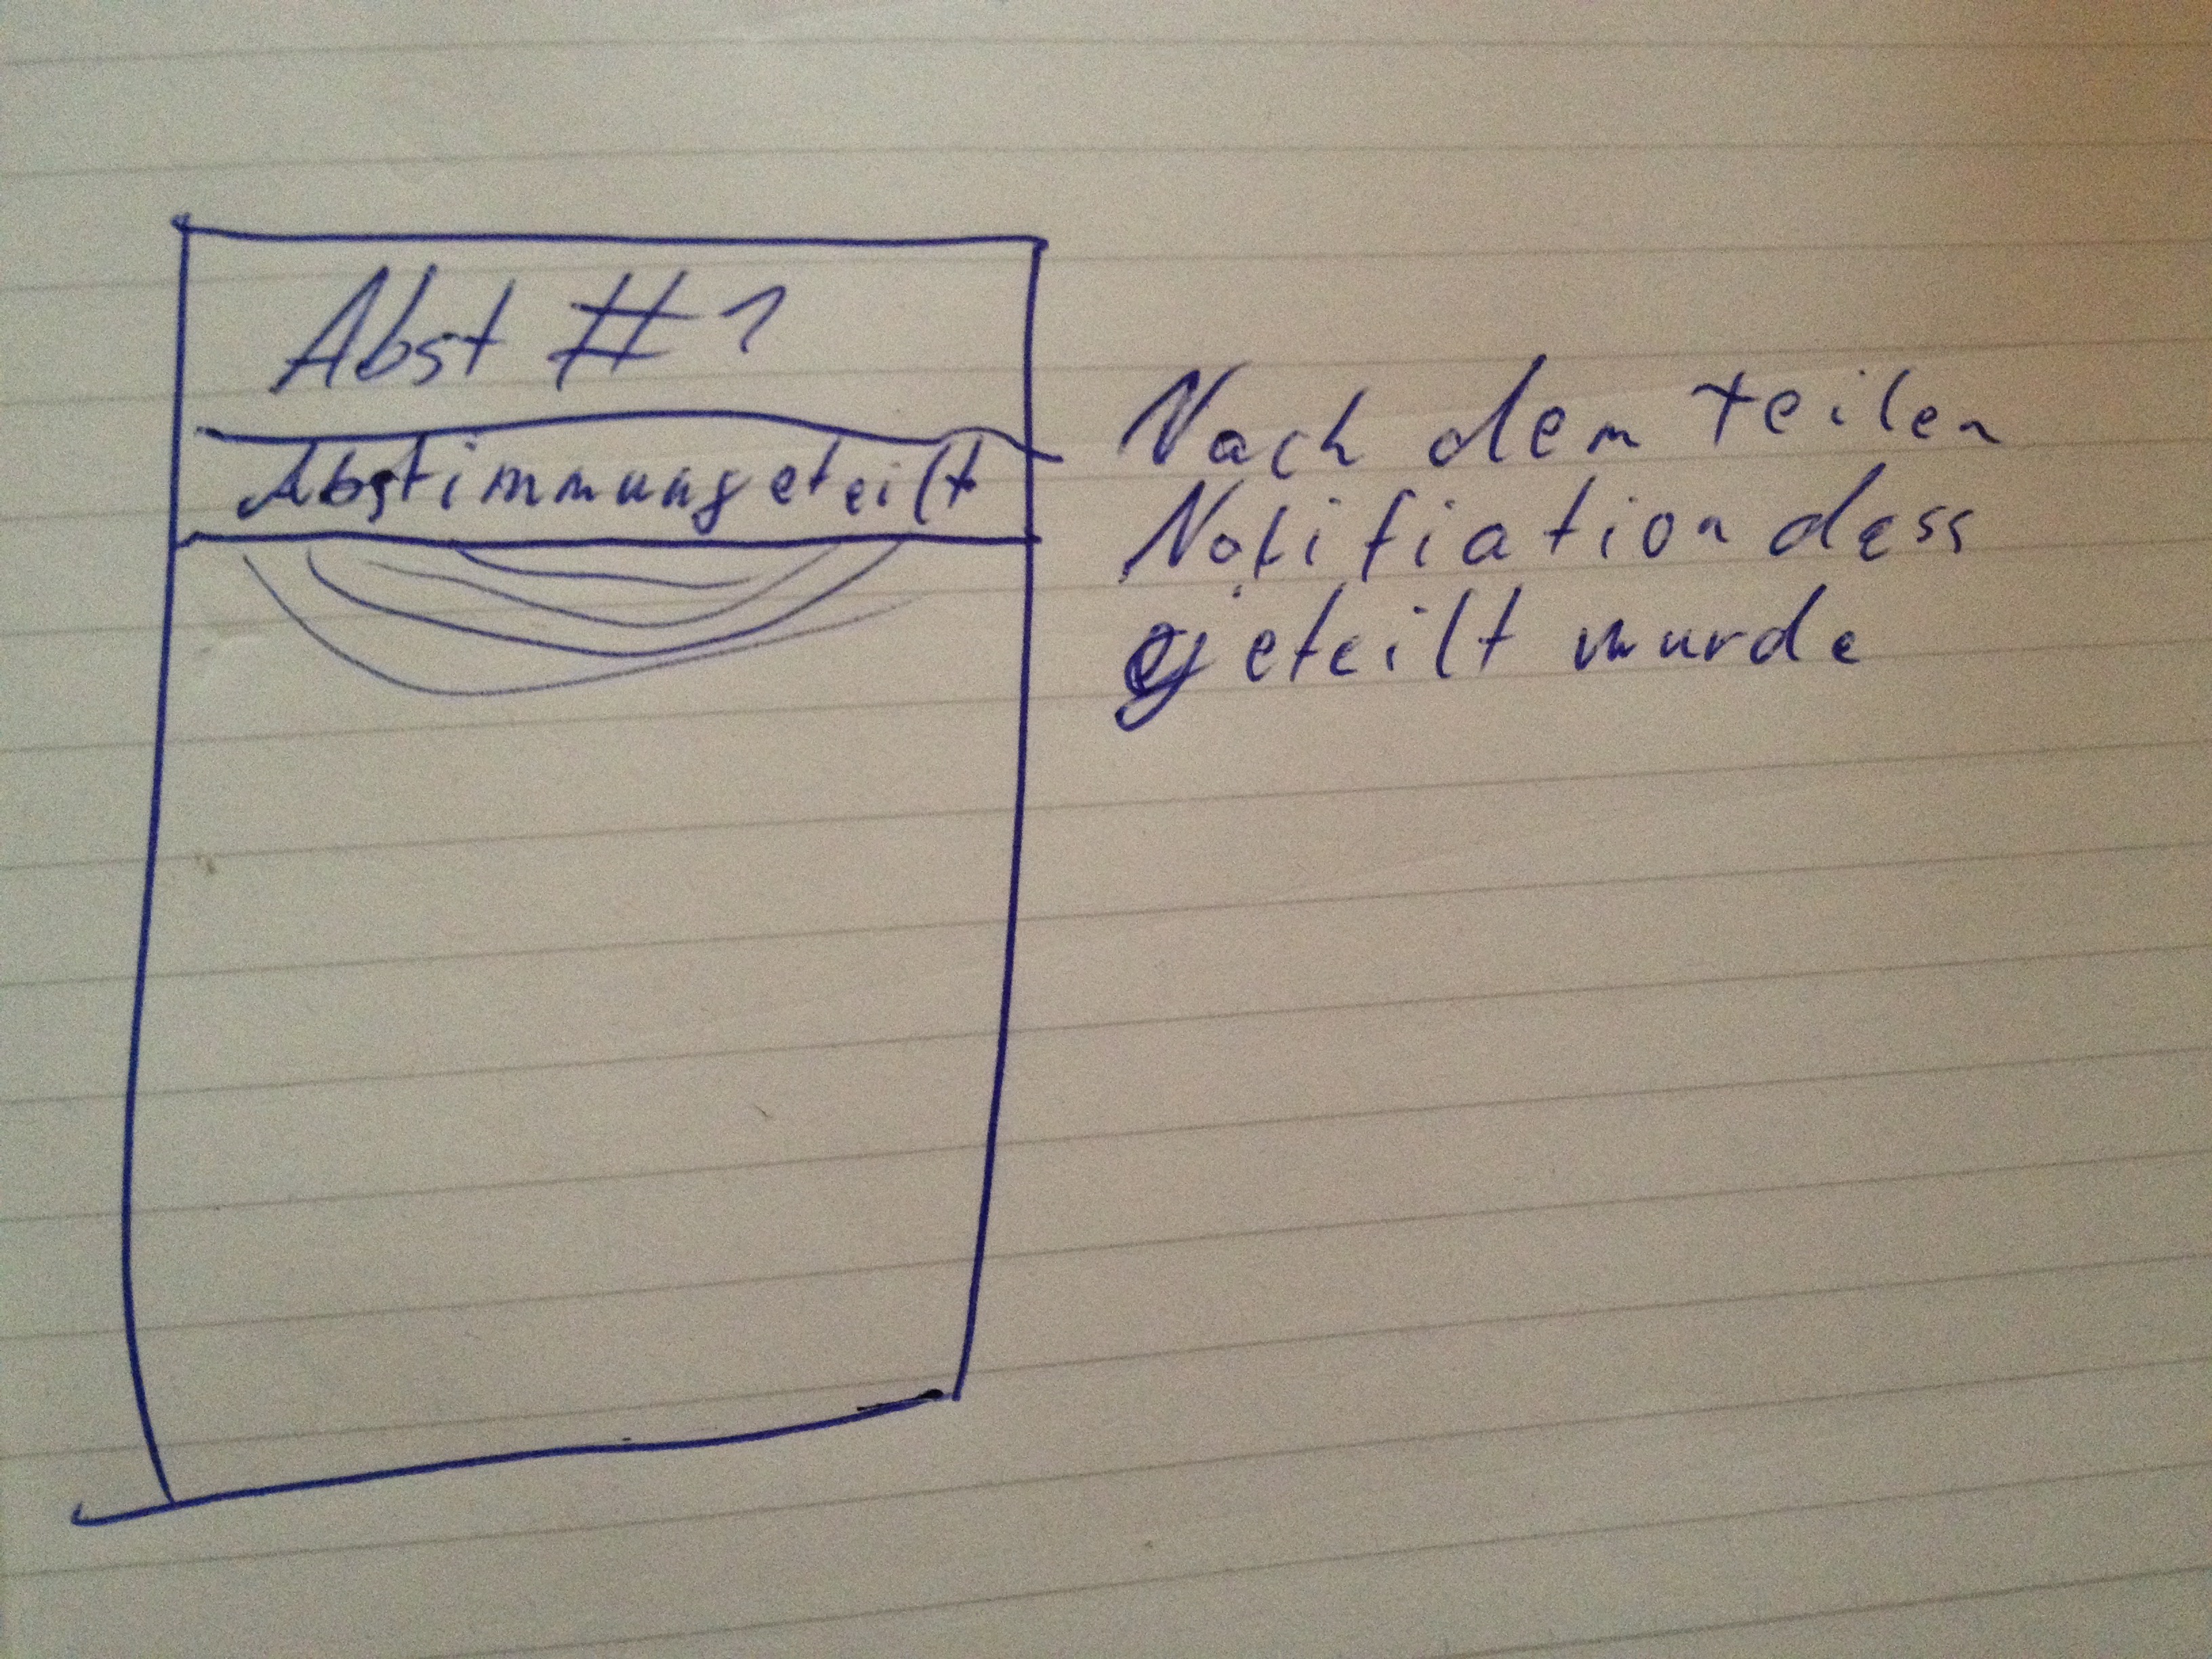 Abst #1
Abstimmungeteilt
Nach dem teilen
Notifiation dass
geteilt wurde